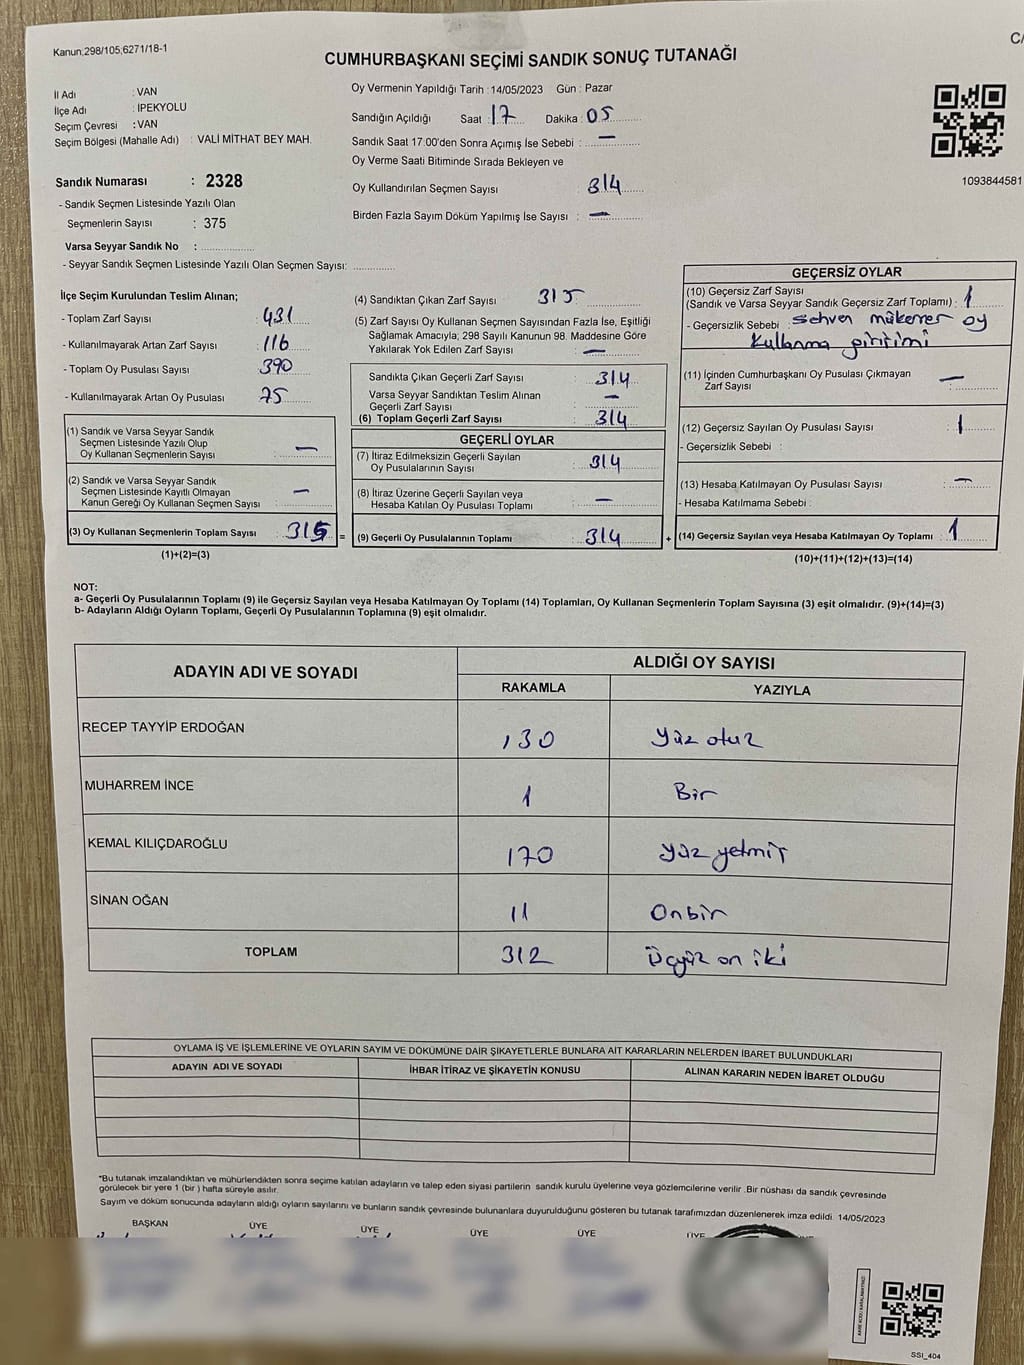 Kanun:298/105,6271/18-1
C/
CUMHURBAŞKANI SEÇİMİ SANDIK SONUÇ TUTANAĞI
İl Adı : VAN
İlçe Adı : İPEKYOLU
Seçim Çevresi : VAN
Seçim Bölgesi (Mahalle Adı) : VALİ MİTHAT BEY MAH.
Sandık Numarası : 2328
- Sandık Seçmen Listesinde Yazılı Olan
Seçmenlerin Sayısı : 375
Varsa Seyyar Sandık No :
- Seyyar Sandık Seçmen Listesinde Yazılı Olan Seçmen Sayısı:
Oy Vermenin Yapıldığı Tarih : 14/05/2023 Gün : Pazar
Sandığın Açıldığı Saat : 17 Dakika : 05
Sandık Saat 17:00'den Sonra Açımış İse Sebebi : —
Oy Verme Saati Bitiminde Sırada Bekleyen ve
Oy Kullandırılan Seçmen Sayısı : 314
Birden Fazla Sayım Döküm Yapılmış İse Sayısı : —
1093844581
İlçe Seçim Kurulundan Teslim Alınan;
- Toplam Zarf Sayısı : 431
- Kullanılmayarak Artan Zarf Sayısı : 116
- Toplam Oy Pusulası Sayısı : 390
- Kullanılmayarak Artan Oy Pusulası : 75
(1) Sandık ve Varsa Seyyar Sandık
Seçmen Listesinde Yazılı Olup
Oy Kullanan Seçmenlerin Sayısı : —
(2) Sandık ve Varsa Seyyar Sandık
Seçmen Listesinde Kayıtlı Olmayan
Kanun Gereği Oy Kullanan Seçmen Sayısı : —
(3) Oy Kullanan Seçmenlerin Toplam Sayısı : 315 =
(1)+(2)=(3)
(4) Sandıktan Çıkan Zarf Sayısı : 315
(5) Zarf Sayısı Oy Kullanan Seçmen Sayısından Fazla İse, Eşitliği
Sağlamak Amacıyla; 298 Sayılı Kanunun 98. Maddesine Göre
Yakılarak Yok Edilen Zarf Sayısı : —
Sandıkta Çıkan Geçerli Zarf Sayısı : 314
Varsa Seyyar Sandıktan Teslim Alınan
Geçerli Zarf Sayısı : —
(6) Toplam Geçerli Zarf Sayısı : 314
GEÇERLİ OYLAR
(7) İtiraz Edilmeksizin Geçerli Sayılan
Oy Pusulalarının Sayısı : 314
(8) İtiraz Üzerine Geçerli Sayılan veya
Hesaba Katılan Oy Pusulası Toplamı : —
(9) Geçerli Oy Pusulalarının Toplamı : 314 +
GEÇERSİZ OYLAR
(10) Geçersiz Zarf Sayısı
(Sandık ve Varsa Seyyar Sandık Geçersiz Zarf Toplamı) : 1
- Geçersizlik Sebebi : Sehven mükerrer oy
kullanma girişimi
(11) İçinden Cumhurbaşkanı Oy Pusulası Çıkmayan
Zarf Sayısı : —
(12) Geçersiz Sayılan Oy Pusulası Sayısı : 1
- Geçersizlik Sebebi :
(13) Hesaba Katılmayan Oy Pusulası Sayısı : —
- Hesaba Katılmama Sebebi :
(14) Geçersiz Sayılan veya Hesaba Katılmayan Oy Toplamı : 1
(10)+(11)+(12)+(13)=(14)
NOT:
a- Geçerli Oy Pusulalarının Toplamı (9) ile Geçersiz Sayılan veya Hesaba Katılmayan Oy Toplamı (14) Toplamları, Oy Kullanan Seçmenlerin Toplam Sayısına (3) eşit olmalıdır. (9)+(14)=(3)
b- Adayların Aldığı Oyların Toplamı, Geçerli Oy Pusulalarının Toplamına (9) eşit olmalıdır.
ADAYIN ADI VE SOYADI ALDIĞI OY SAYISI
RAKAMLA YAZIYLA
RECEP TAYYİP ERDOĞAN 130 Yüz otuz
MUHARREM İNCE 1 Bir
KEMAL KILIÇDAROĞLU 170 Yüz yetmiş
SİNAN OĞAN 11 Onbir
TOPLAM 312 Üçyüz on iki
OYLAMA İŞ VE İŞLEMLERİNE VE OYLARIN SAYIM VE DÖKÜMÜNE DAİR ŞİKAYETLERLE BUNLARA AİT KARARLARIN NELERDEN İBARET BULUNDUKLARI
ADAYIN ADI VE SOYADI İHBAR İTİRAZ VE ŞİKAYETİN KONUSU ALINAN KARARIN NEDEN İBARET OLDUĞU
"Bu tutanak imzalandıktan ve mühürlendikten sonra seçime katılan adayların ve talep eden siyasi partilerin sandık kurulu üyelerine veya gözlemcilerine verilir .Bir nüshası da sandık çevresinde
görülecek bir yere 1 (bir ) hafta süreyle asılır.
Sayım ve döküm sonucunda adayların aldığı oyların sayılarını ve bunların sandık çevresinde bulunanlara duyurulduğunu gösteren bu tutanak tarafımızdan düzenlenerek imza edildi. 14/05/2023
BAŞKAN ÜYE ÜYE ÜYE ÜYE ÜYE
SSI_404